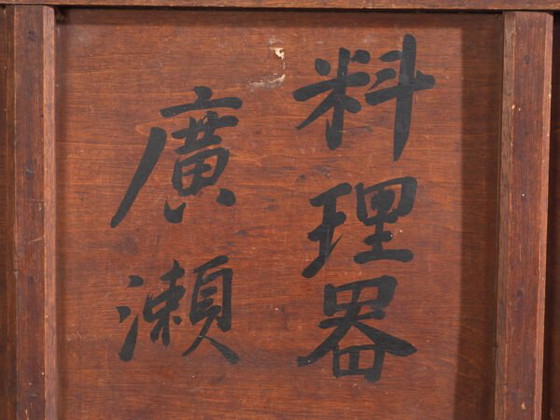 料理器
廣瀬